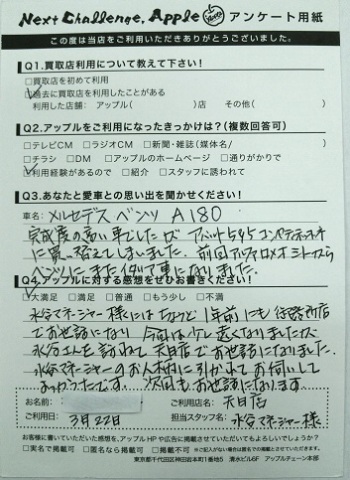 Next Challenge, Apple アンケート用紙
この度は当店をご利用いただきありがとうございました。
Q1.買取店利用について教えて下さい!
□買取店を初めて利用
□過去に買取店を利用したことがある
利用した店舗: アップル( )店 その他( )
Q2.アップルをご利用になったきっかけは?(複数回答可)
□テレビCM □ラジオCM □新聞・雑誌(媒体名/ )
□チラシ □DM □アップルのホームページ □通りがかりで
□利用経験があるので □紹介 □スタッフに誘われて
Q3.あなたと愛車との思い出を聞かせください!
車名: メルセデス ベンツ A180
完成度の高い車でしたが アバルト595コンペティツィオーネ
に買い替えてしまいました. 前回アルファロメオ ミトから
ベンツにまたイタリア車になりました.
Q4.アップルに対する感想をぜひお書きください!
□大満足 □満足 □普通 □もう少し □不満
水谷マネージャー様には ちょうど1年前にも
でお世話になり 今回は少し遠くなりましたが
水谷さんを訪ねて 天白店でお世話になりました.
水谷マネージャーのお人柄に引かれてお伺いして
よかったです. 次回もお世話になります
お名前: ご利用店名: 天白店
ご利用日: 3月22日 担当スタッフ名: 水谷マネジャー様
お客様に書いていただいた感想を、アップルHPや広告に掲載させていただいてもよろしいでしょうか?
□実名で掲載可 □匿名なら掲載可 □掲載不可 ※ご記入がない場合は匿名での掲載とさせていただきます。
東京都千代田区神田紺屋町1番地5 清水ビル6F アップルチェーン本部